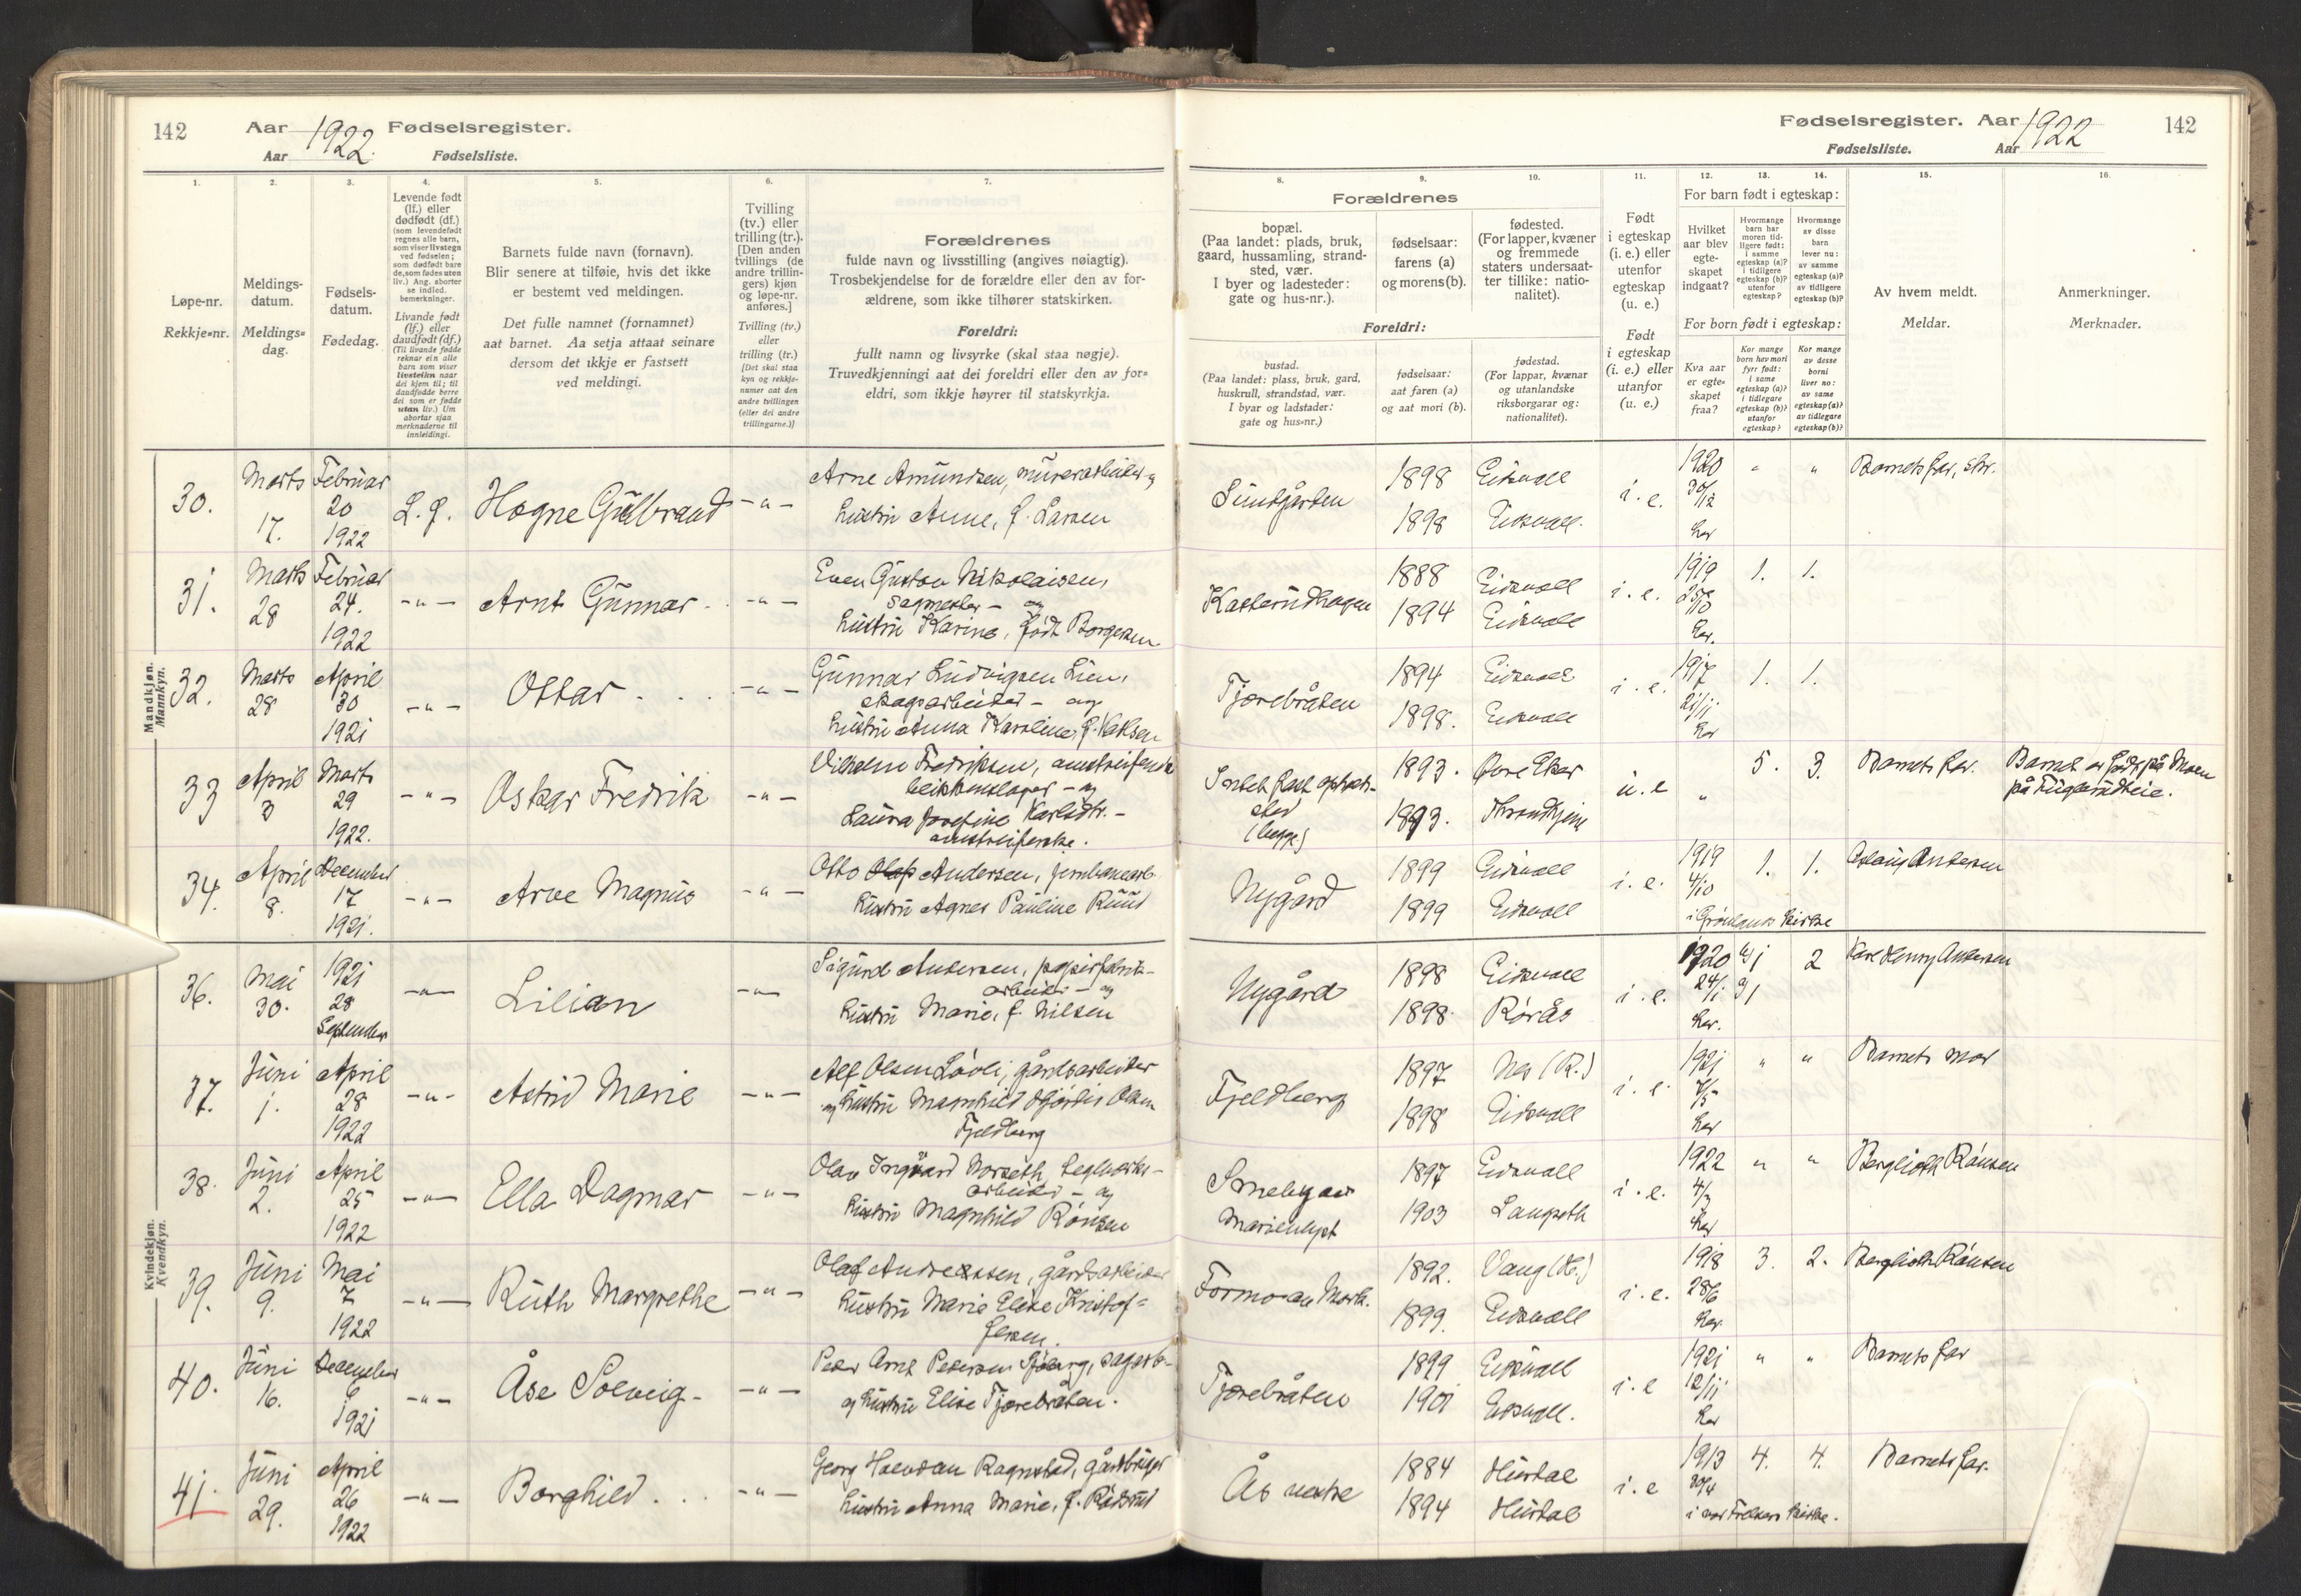 142
Aar 1922 Fødselsregister.
Aar
Fødselsliste.
Fødselsregister. Aar 1922
142
Fødselsliste.
Aar
1.
Løpe-nr.
Rekkje=nr.
2.
Meldings-
datum.
Meldings=
dag.
3.
Fødsels-
datum.
Fødedag.
4.
Levende født
(lf.) eller
dødfødt (df.)
(som levendefødt
regnes alle barn,
som viser livstegn
ved fødselen;
som dødfødt bare
de, som fødes uten
liv.) Ang. aborter
se indled.
bemerkninger.
Livande født
(lf.) eller
daudfødt (df.)
(Til livande fødde
reknar ein alle
barn som viser
livsteikn naar
dei kjem til; til
daudfødde berre
dei som er fødde
utan liv.) Um
abortar sjaa
merknaderne til
innleidingi.
5.
Barnets fulde navn (fornavn).
Blir senere at tilføie, hvis det ikke
er bestemt ved meldingen.
Det fulle namnet (fornamnet)
aat barnet. Aa setja attaat seinare
dersom det ikkje er fastsett
ved meldingi.
6.
Tvilling
(tv.) eller
trilling (tr.).
[Den anden
tvillings (de
andre trillin-
gers) kjøn
og løpe-nr.
anføres.]
Tvilling (tv.)
eller
trilling (tr.)
[Det skal staa
kyn og rekkje-
numer aat den
andre tvillingen
(eller dei andre
trillingarne.)]
7.
Forældrenes
fulde navn og livsstilling (angives nøiagtig).
Trosbekjendelse for de forældre eller den av for-
ældrene, som ikke tilhører statskirken.
Foreldri:
fullt namn og livsyrke (skal staa nøgje).
Truvedkjenningi aat dei foreldri eller den av for=
eldri, som ikkje høyrer til statskyrkja.
8.
Forældrenes
bopæl.
(Paa landet: plads, bruk,
gaard, hussamling, strand-
sted, vær.
I byer og ladesteder:
gate og hus-nr.).
Foreldri:
bustad.
(Paa landet: plass, bruk, gard,
huskrull, strandstad, vær.
I byar og ladstader:
gate og hus=nr.)
9.
fødselsaar:
farens (a)
og morens (b).
fødselsaar:
aat faren (a)
og aat mori (b).
10.
fødested.
(For lapper, kvæner
og fremmede
staters undersaat-
ter tillike: natio-
nalitet).
fødestad.
(For lappar, kvænar
og utanlandske
riksborgarar og:
nationalitet).
11.
Født
i egteskap
(i. e.) eller
utenfor
egteskap
(u. e.)
Født
i egteskap
(i. e.) eller
utanfor
(u. e.)
12.
For barn født i egteskap:
Hvilket
aar blev
egte-
skapet
indgaat?
For born født i egteskap:
Kva aar
er egte=
skapet
fraa?
13.
Hvormange
barn har
moren tid-
ligere født:
i samme
egteskap (a)?
i tidligere
egteskap (b)?
utenfor
egteskap?
Kor mange
born hev mori
fyrr født:
i same
egteskap (a)?
i tidlegare
egteskap (b)?
utanfor
egteskap?
14.
Hvormange
av disse
barn
lever nu:
av samme
egteskap (a)?
av tidligere
egteskap (b)?
Kor mange
av desse
borni
liver no:
av same
egteskap (a)?
av tidlegare
egteskap (b)?
15.
Av hvem meldt.
Meldar.
16.
Anmerkninger.
Merknader.
Mandkjøn.
Mannkyn.
30. Marts 17. Februar 20 1922 L. f. Hogne Gulbrand -"-
Arne Amundsen, murerarbeider og
hustru Anne, f. Larsen
Sundgården 1898 Eidsvoll i. e. 1920 " " Barnets far, skr.
1898 Eidsvoll. 30/12
her
31. Marts 28 Februar 24. 1922 -"- Arnt Gunnar -"-
Even Gustav Nikolaisen,
sagmester - og
hustru Karine, født Borgersen
Kasterudhagen 1888 Eidsvoll i. e. 1919 1. 1.
1894 Eidsvoll
her.
32. Marts 28 April 30 1921 -"- Ottar -"-
Gunnar Ludvigsen Lien,
skogsarbeider - og
hustru Anna Karoline, f.
Tjærebråten 1894 Eidsvoll i. e. 1917 1. 1.
1898. Eidsvoll 21/11
her
33 April 3 Marts 29 1922. -"- Oskar Fredrik -"-
Vilhelm Fredriksen, omstreifende
blikkenslager - og
Laura Josefine Karlsdtr. -
omstreiferske.
Intet fast opholds-
sted
(begge)
1893. Øvre Eker u. e " 5. 3. Barnets far. Barnet er født på Moen
1893. Throndhjem på
34. April 8. December 17 1921. -"- Arve Magnus -"-
Otto Olaf Andersen, jernbanearb.
hustru Agnes Pauline Ruud
Nygård 1899 Eidsvoll i. e. 1919 1. 1. Andersen
1899 Eidsvoll 4/10
i Grønlands kirke
Kvindekjøn.
Kvendkyn.
36. Mai 30. 1921 28 September -"- Lilian -"-
Sigurd Andersen, papirfabrik-
arbeider - og
hustru Marie, f. Nilsen
Nygård 1898 Eidsvoll i. e. 1920 1 2 Kare Henry Andersen
1898 Rørås 24/1 1
her.
37. Juni 1. April 28 1922 -"- Astrid Marie -"-
Alf Olsen Løvli, gårdsarbeider
og hustru Magnhild Hjørdis Olsen
Fjeldberg
Fjeldberg 1897 Nes (R.) i. e. 1921 " " Barnets mor
1898 Eidsvoll 7/5
her
38. Juni 2. April 25 1922 -"- Ella Dagmar -"-
Olav Ingvard Norseth, teglverks-
arbeider - og
hustru Magnhild Rønsen
Smeby av
Marienlyst
1897 Eidsvoll i. e. 1922 " " Berglioth Rønsen
1903 Langseth 4/3
her
39. Juni 9. Mai 7 1922 -"- Ruth Margrethe -"-
Olaf Andreassen, gårdsarbeider
hustru Marie Elise Kristof=
fersen.
Formo av Mork. 1892. Vang (H.) i. e. 1918 3. 2. Bergliot Rønsen
1899. Eidsvoll 28/6
her.
40. Juni 16. December 6 1921 -"- Åse Solveig -"-
Peder Arnt Pedersen Sjøberg, sagarb.-
og hustru Elise Tjærebråten.
Tjærebråten 1899 Eidsvoll i. e 1921 " " Barnets far
1901 Eidsvoll. 12/11
her
41. Juni 29. April 26 1922 -"- Borghild -"-
Georg Halvdan Ragnstad, gårdbruger
hustru Anna Marie, f. Rådsrud
Ås vestre 1884 Hurdal i. e 1913 4. 4. Barnets far.
1894 Hurdal 20/4
i vor Frelsers kirke.